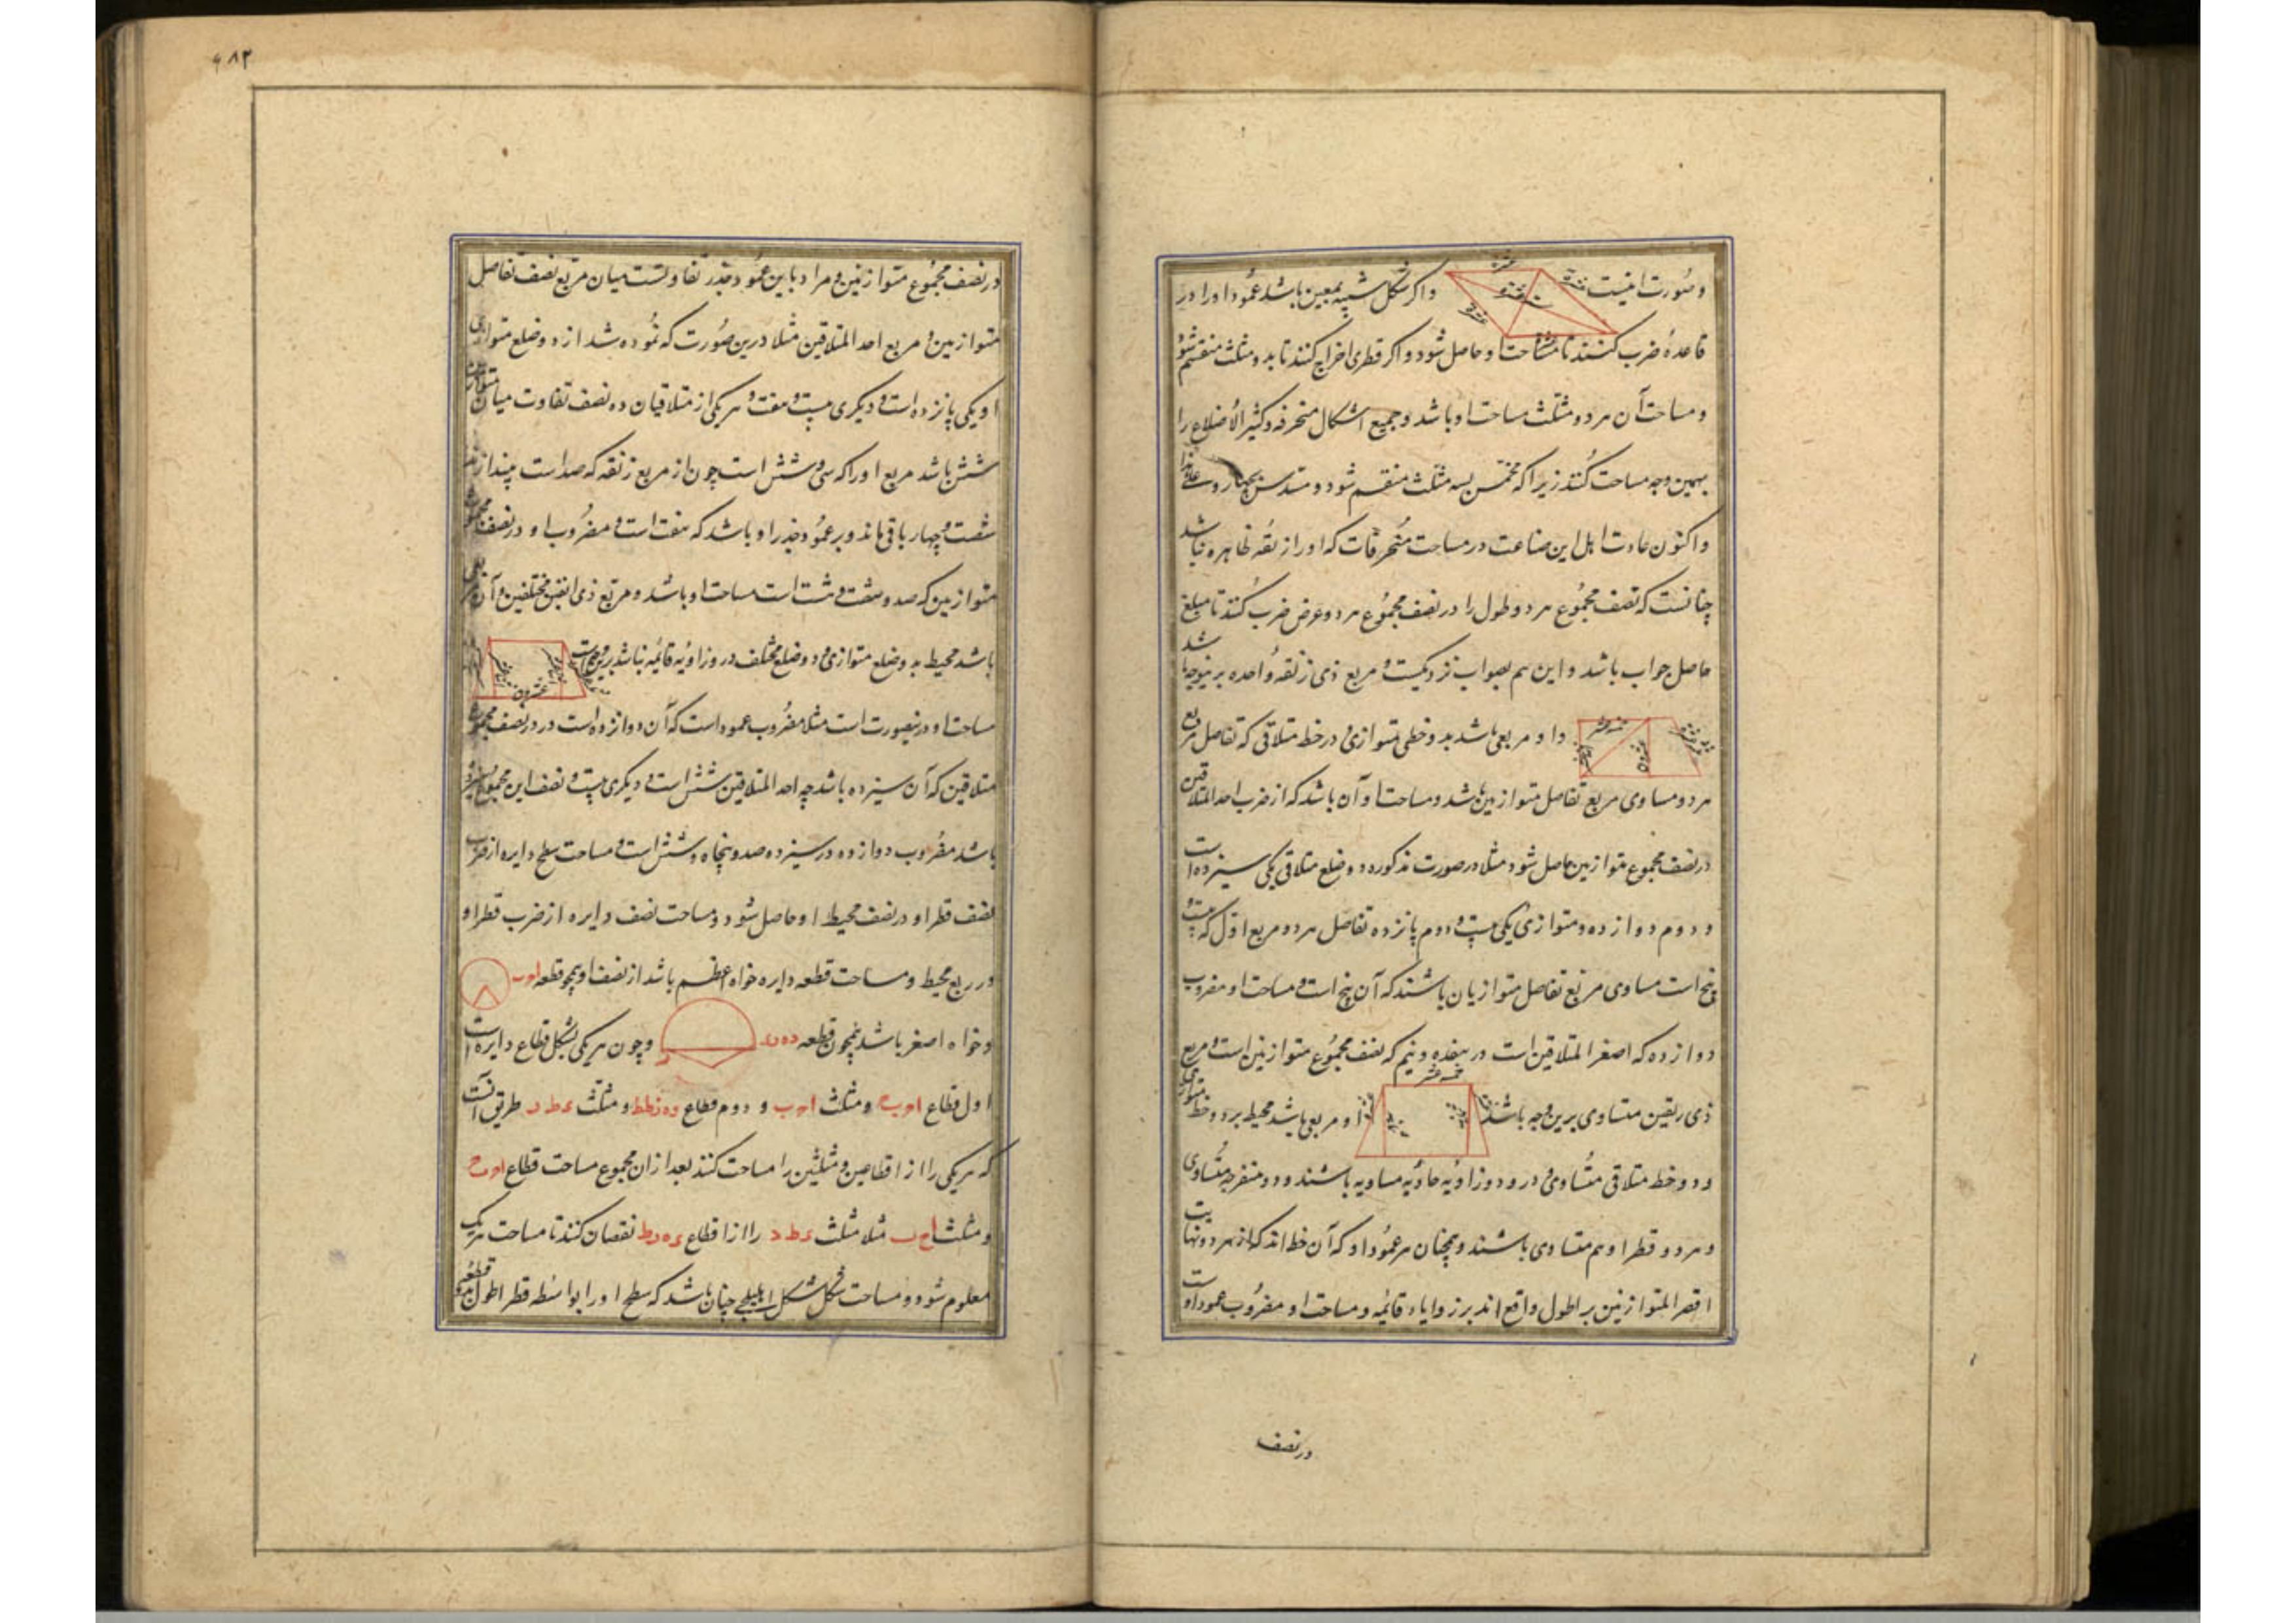 وصورت اینست واکر شکل شبیه بمعین باشد عمود اورا در
قاعده ضرب کنند تا مساحت او حاصل شود و اکر قطری اخراج کنند تا بدو مثلث منقسم شود
ومساحت آن هر دو مثلث مساحت او باشد و جمیع اشکال منحرفه و کثیر الاضلاع را
بهمین وجه مساحت کنند زیرا که مخمس بسه مثلث منقسم شود و مسدس بچهار و
واکنون عادت اهل این صناعت در مساحت منحرفات که اورا زنقه ظاهره نباشد
چنانست که نصف مجموع هر دو طول را در نصف مجموع هر دو عرض ضرب کنند تا مبلغ
حاصل جواب باشد و این هم بصواب نزدیکست و مربع ذی زنقه واحده برینوجه باشد
و او مربعی باشد بدو خطی متوازی و دو خط متلاقی که تفاصل مربع
هر دو مساوی مربع تفاصل متوازیین باشد و مساحت او آن باشد که از ضرب احد المتلاقیین
در نصف مجموع متوازیین حاصل شود مثلا در صورت مذکوره دو ضلع متلاقی یکی سیزده است
و دوم دوازده و متوازی یکی بیست و دوم پانزده تفاصل هر دو مربع اول که بیست و
پنج است مساوی مربع تفاصل متوازیان باشند که آن پنج است و مساحت او مضروب
دوازده که اصغر المتلاقیین است در هفده و نیم که نصف مجموع متوازیین است و مربع
ذی زنقتین متساوی برین وجه باشد و او مربعی باشد محیط برو دو خط متوازی
و دو خط متلاقی متساوی و درو دو زاویه حاده مساویه باشند و دو منفرجه متساوی
و هر دو قطر او هم متساوی باشند و همچنان هر عمود او که آن خط اند که از هر دو نهایت
اقصر المتوازیین بر اطول واقع اند بر زوایاء قائمه و مساحت او مضروب عمود اوست
در نصف
۶۸۲
در نصف مجموع متوازیین و مراد باین عمود جذر تفاوتست میان مربع نصف تفاصل
متوازیین و مربع احد المتلاقیین مثلا درین صورت که نموده شد از دو ضلع متوازی
او یکی پانزده است و دیکری بیست و هفت و هر یکی از متلاقیان ده نصف تفاوت میان
شش باشد مربع اورا که سی و شش است چون از مربع زنقه که صد است بیندازند
شصت و چهار باقی ماند و بر عمود جذر او باشد که هفت است و مضروب او در نصف مجموع
متوازیین که صد و شصت و هشت است مساحت او باشد و مربع ذی زنقتین مختلفین و آن
باشد محیط بدو ضلع متوازی و دو ضلع مختلف درو زاویه قائمه نباشد برین وجه
مساحت او درینصورت است مثلا مضروب عمود است که آن دوازده است در نصف مجموع
متلاقیین که آن سیزده باشد چه احد المتلاقیین شش است و دیکری بیست و نصف این مجموع سیزده
باشد مضروب دوازده در سیزده صد و پنجاه و شش است و مساحت سطح دایره از ضرب
نصف قطر او در نصف محیط او حاصل شود و مساحت نصف دایره از ضرب قطر او
در ربع محیط و مساحت قطعه دایره خواه اعظم باشد از نصف او همچو قطعه
وخواه اصغر باشد همچون قطعه و چون هر یکی بشکل قطاع دایره است
اول قطاع و مثلث و دوم قطاع و مثلث طریق آنست
که هر یکی را از قطاعین و مثلثین را مساحت کنند بعد از ان مجموع مساحت قطاع
و مثلث مثلا مثلث را از قطاع نقصان کنند تا مساحت هر یک
معلوم شود و مساحت شکل اهلیلجی چنان باشد که سطح اورا بواسطه قطر اطول